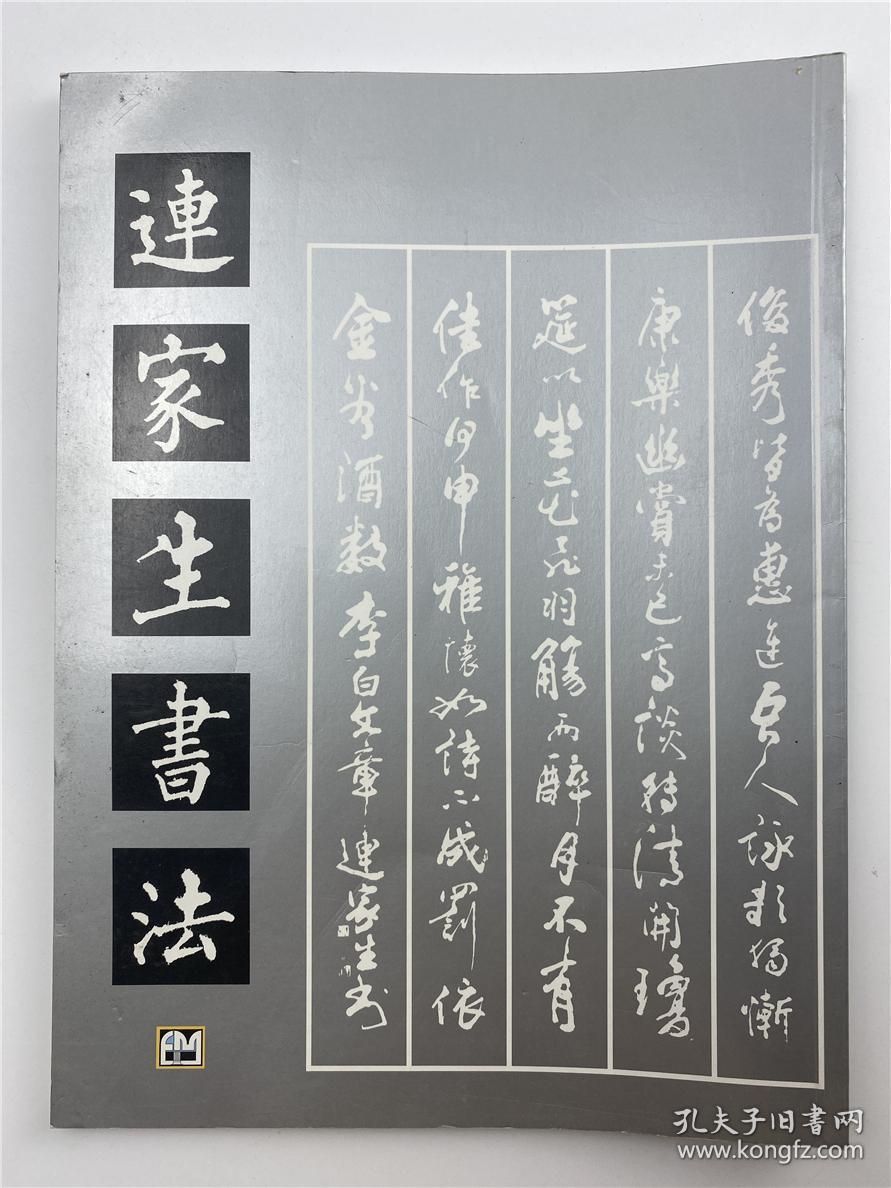 連家生書法
俊秀皆為惠連吾人詠歌獨慚
康樂幽賞未已高談轉清開瓊
筵以坐花飛羽觴而醉月不有
佳作何申雅懷如詩不成罰依
金谷酒数李白文章連家生书
孔夫子旧书网
www.kongfz.com